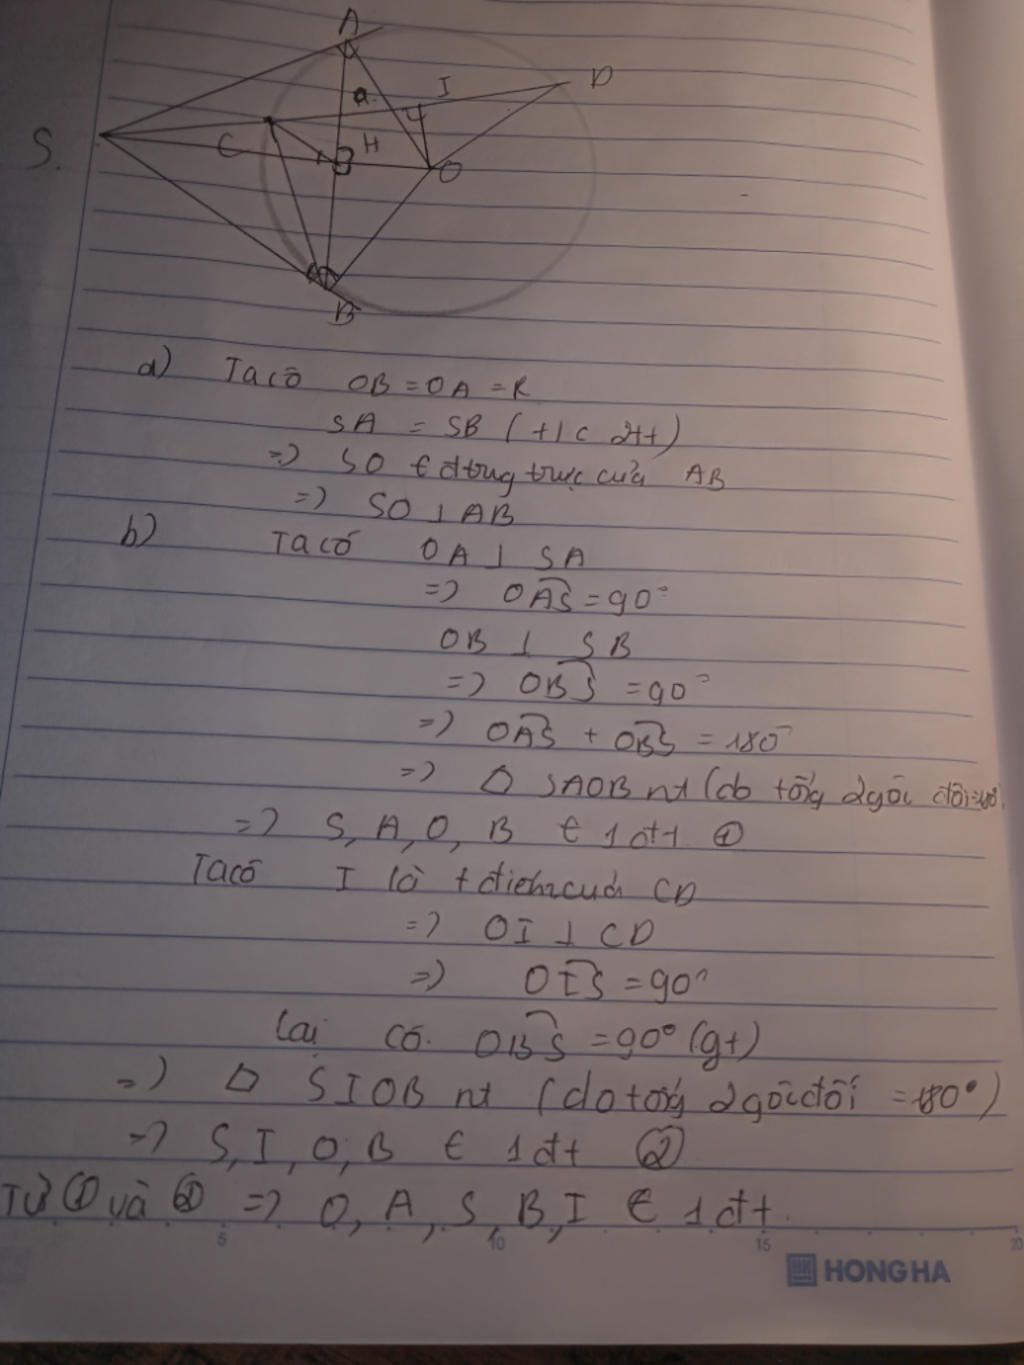 A
I
D
Q
S.
C
H
O
B
a) Ta có OB = OA = R
SA = SB (t/c 2tt)
=> SO € đtrung trực của AB
=> SO ⊥ AB
b) Ta có OA ⊥ SA
=> OAS = 90°
OB ⊥ SB
=> OBS = 90°
=> OAS + OBS = 180°
=> SAOB nt (do tổng 2 góc đối =180
=> S, A, O, B € 1 đtt ①
Ta có I là tđiểm của CD
=> OI ⊥ CD
=> OIS = 90°
Lại có. OBS = 90° (gt)
=> SIOB nt (do tổng 2 góc đối = 180°)
=> S, I, O, B € 1 đtt ②
Từ ① và ② => O, A, S, B, I € 1 đtt.
5 10 15 20
HONG HA